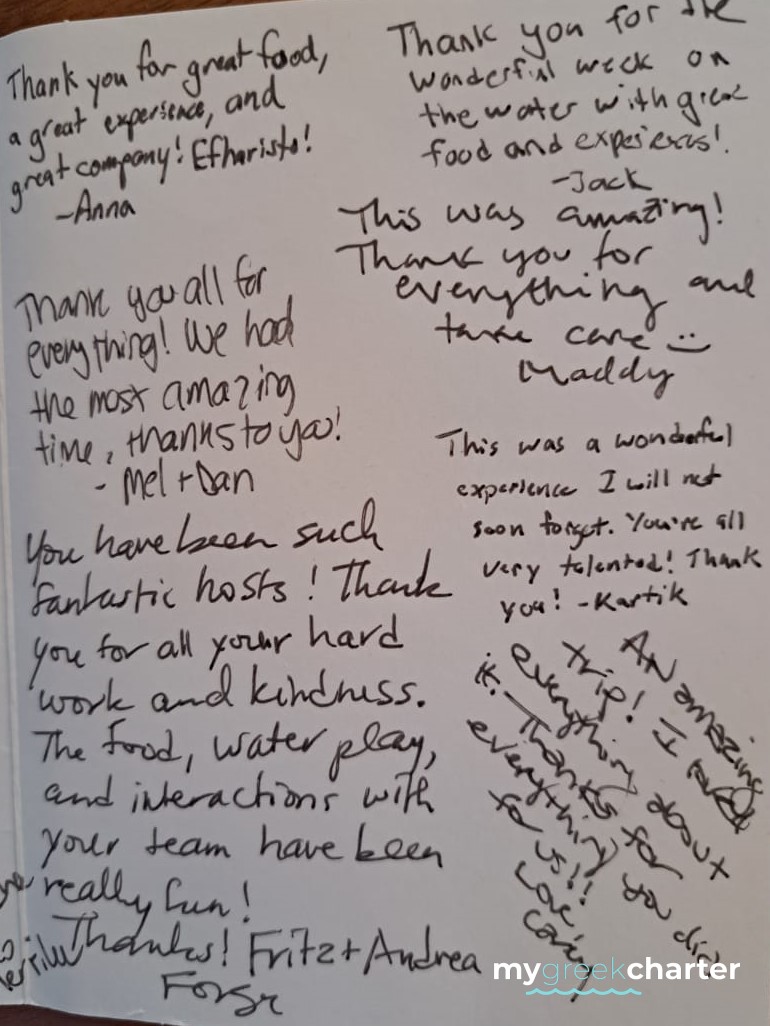 Thank you for great food,
a great experience, and
great company! Efharisto!
-Anna
Thank you for the
wonderful week on
the water with great
food and experiences!
-Jack
This was amazing!
Thank you for
everything and
take care :)
Maddy
Thank you all for
everything! We had
the most amazing
time, thanks to you!
- Mel + Dan
This was a wonderful
experience I will not
soon forget. You're all
very talented! Thank
you! -Kartik
You have been such
fantastic hosts! Thank
you for all your hard
work and kindness.
The food, water play,
and interactions with
your team have been
really fun!
Thanks! Fritz + Andrea
AN amazing
trip! I loved
everything about
it. Thanks for
everything you did
for us!!
Love,
mygreekcharter